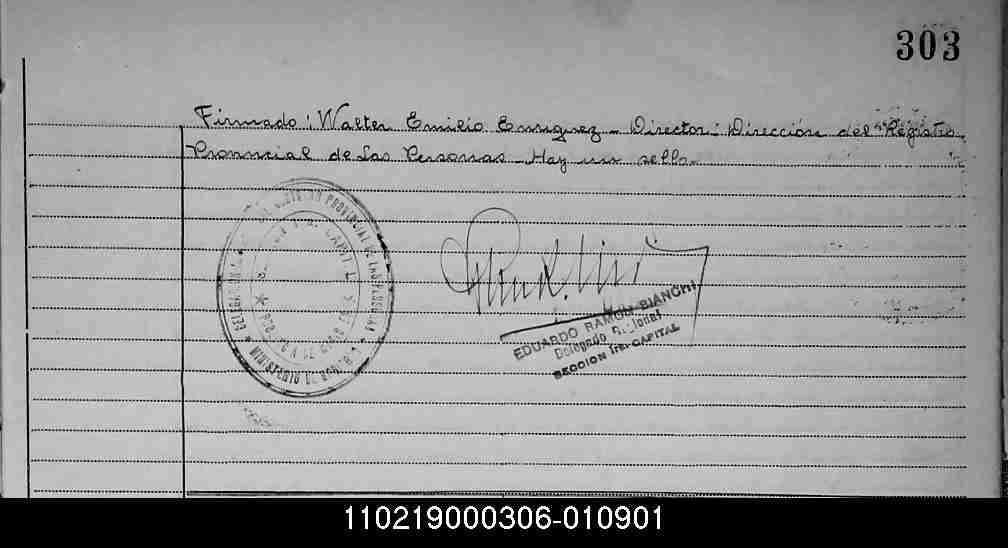 303
Firmado: Walter Emilio Enriquez - Director: Dirección del Registro
Provincial de Las Personas - Hay un sello.
PROVINCIAL DE LAS PERSONAS
DELEGACION
MINISTERIO DE
EDUARDO RAMON BIANCHI
Delegado
SECCION CAPITAL
110219000306-010901